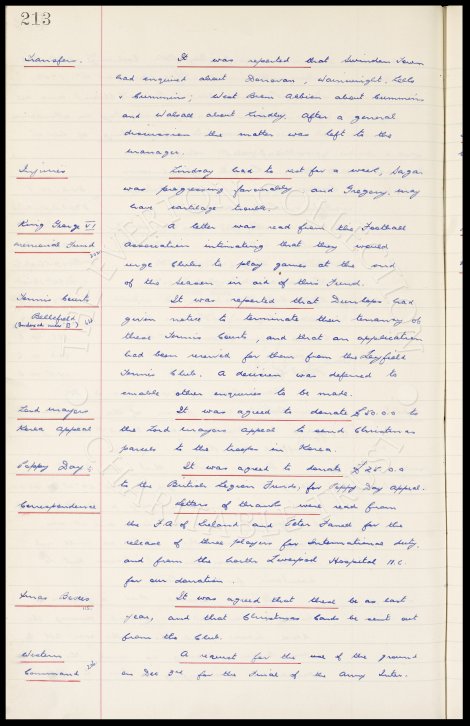 213
Transfers. It was reported that Swindon Town
had enquired about Donovan, Wainwright, Eglls
& Cummins; West Brom Albion about Cummins
and Walsall about Lindley. After a general
discussion the matter was left to the
manager.
Injuries Lindsay had to rest for a week, Sagar
was progressing favourably and Gregory may
have cartilage trouble.
King George VI A letter was read from the Football
Memorial Fund Association intimating that they would
urge Clubs to play games at the end
of the Season in aid of this Fund.
Tennis Courts It was reported that Dunlops had
Bellefield given notice to terminate their tenancy of
these Tennis Courts, and that an application
had been received for them from the Layfield
Tennis Club. A decision was deferred to
enable other enquiries to be made.
Lord Mayors It was agreed to donate £50.0.0 to
Korea Appeal the Lord Mayors Appeal to send Christmas
parcels to the troops in Korea.
Poppy Day It was agreed to donate £25.0.0
to the British Legion Funds, for Poppy Day Appeal.
Correspondence Letters of thanks were read from
the F.A of Ireland and Peter Farrell for the
release of three players for International duty,
and from the North Liverpool Hospital M.C.
for our donation.
Xmas Boxes It was agreed that these be as last
year, and that Christmas Cards be sent out
from the Club.
Western A request for the use of the ground
Command on Dec 3rd for the Final of the Army Inter.
THE EVERTON COLLECTION
CHARITABLE TRUST